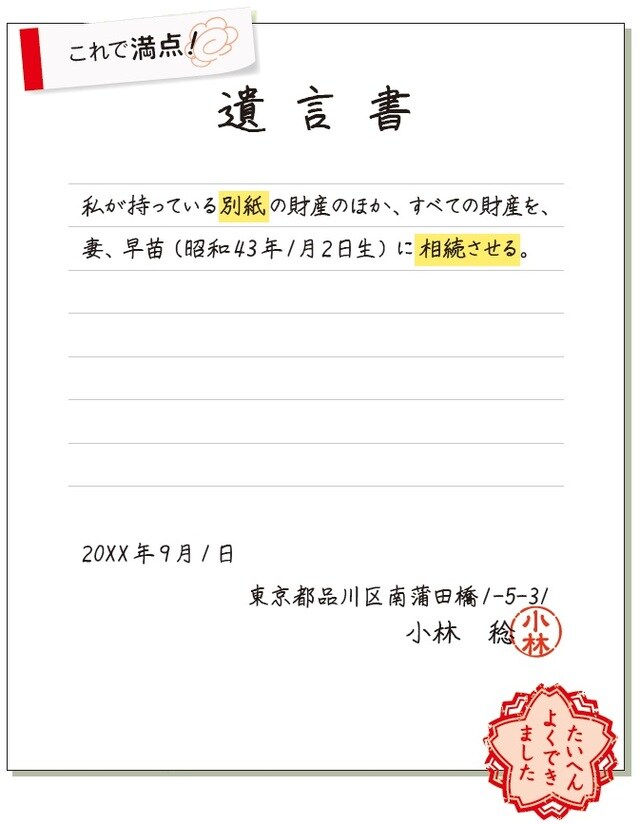 これで満点!
遺言書
私が持っている別紙の財産のほか、すべての財産を、
妻、早苗(昭和43年1月2日生)に相続させる。
20XX年9月1日
東京都品川区南蒲田橋1-5-31
小林 稔
小林
たいへん
よくでき
ました